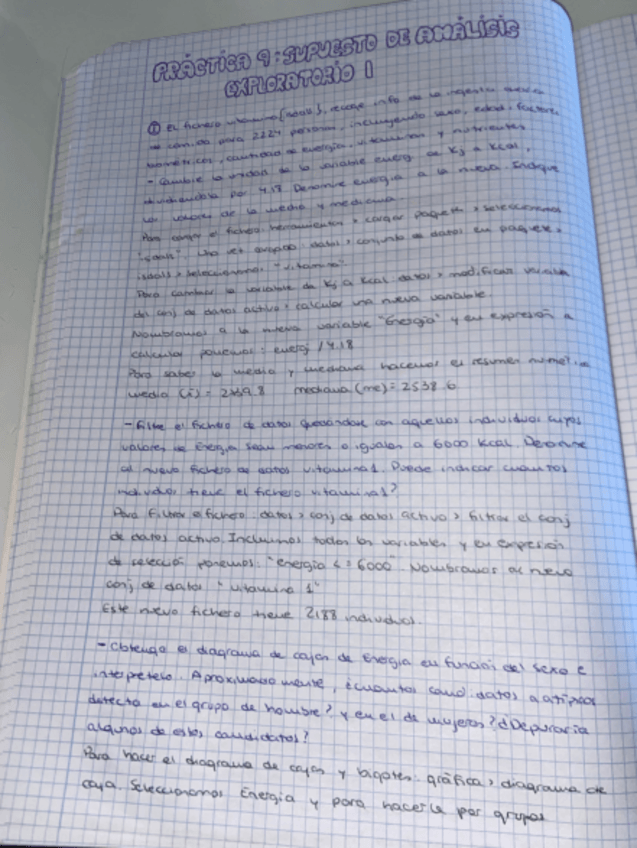 PRÁCTICA 9: SUPUESTO DE ANÁLISIS
EXPLORATORIO 1
① El fichero vitamina (isdals), recoge info de la ingesta
de comida para 2224 personas, incluyendo sexo, edad, factores
biométricos, cantidad de energía, vitaminas y nutrientes
- Cambie la unidad de la variable energ de KJ a Kcal,
dividiendola por 4.18 Denomine energia a la nueva. Indique
los valores de la media y mediana
Para cargar el fichero: herramientas > cargar paquetes > seleccionamos
"isdals". Una vez cargado: datos > conjunto de datos en paquetes >
isdals > seleccionamos "vitamina"
Para cambiar la variable de KJ a Kcal datos > modificar variables
del conj de datos activo > calcular una nueva variable.
Nombramos a la nueva variable "Energia" y en expresión a
calcular ponemos: energ / 4.18
Para saber la media y mediana hacemos el resumen numérico
mediana (me) = 2538.6
- Filtre el fichero de datos quedándose con aquellos individuos cuyos
valores de Energía sean menores o iguales a 6000 Kcal. Denomine
al nuevo fichero de datos vitamina1. Puede indicar cuantos
individuos tiene el fichero vitamina1?
Para filtrar el fichero: datos > conj de datos activo > filtrar el conj
de datos activo. Incluimos todas las variables y en expresión
de selección ponemos: "energia <= 6000 Nombramos al nuevo
conj de datos "vitamina 1"
Este nuevo fichero tiene 2188 individuos.
- Obtenga el diagrama de cajas de Energía en función del sexo e
interpretelo. Aproximadamente, ¿cuantos cand. datos a atipicos
detecta en el grupo de hombre? y en el de mujeres? ¿Depuraria
algunos de estos candidatos?
Para hacer el diagrama de cajas y bigotes: gráfica > diagrama de
caja. Seleccionamos Energía y para hacerle por grupos